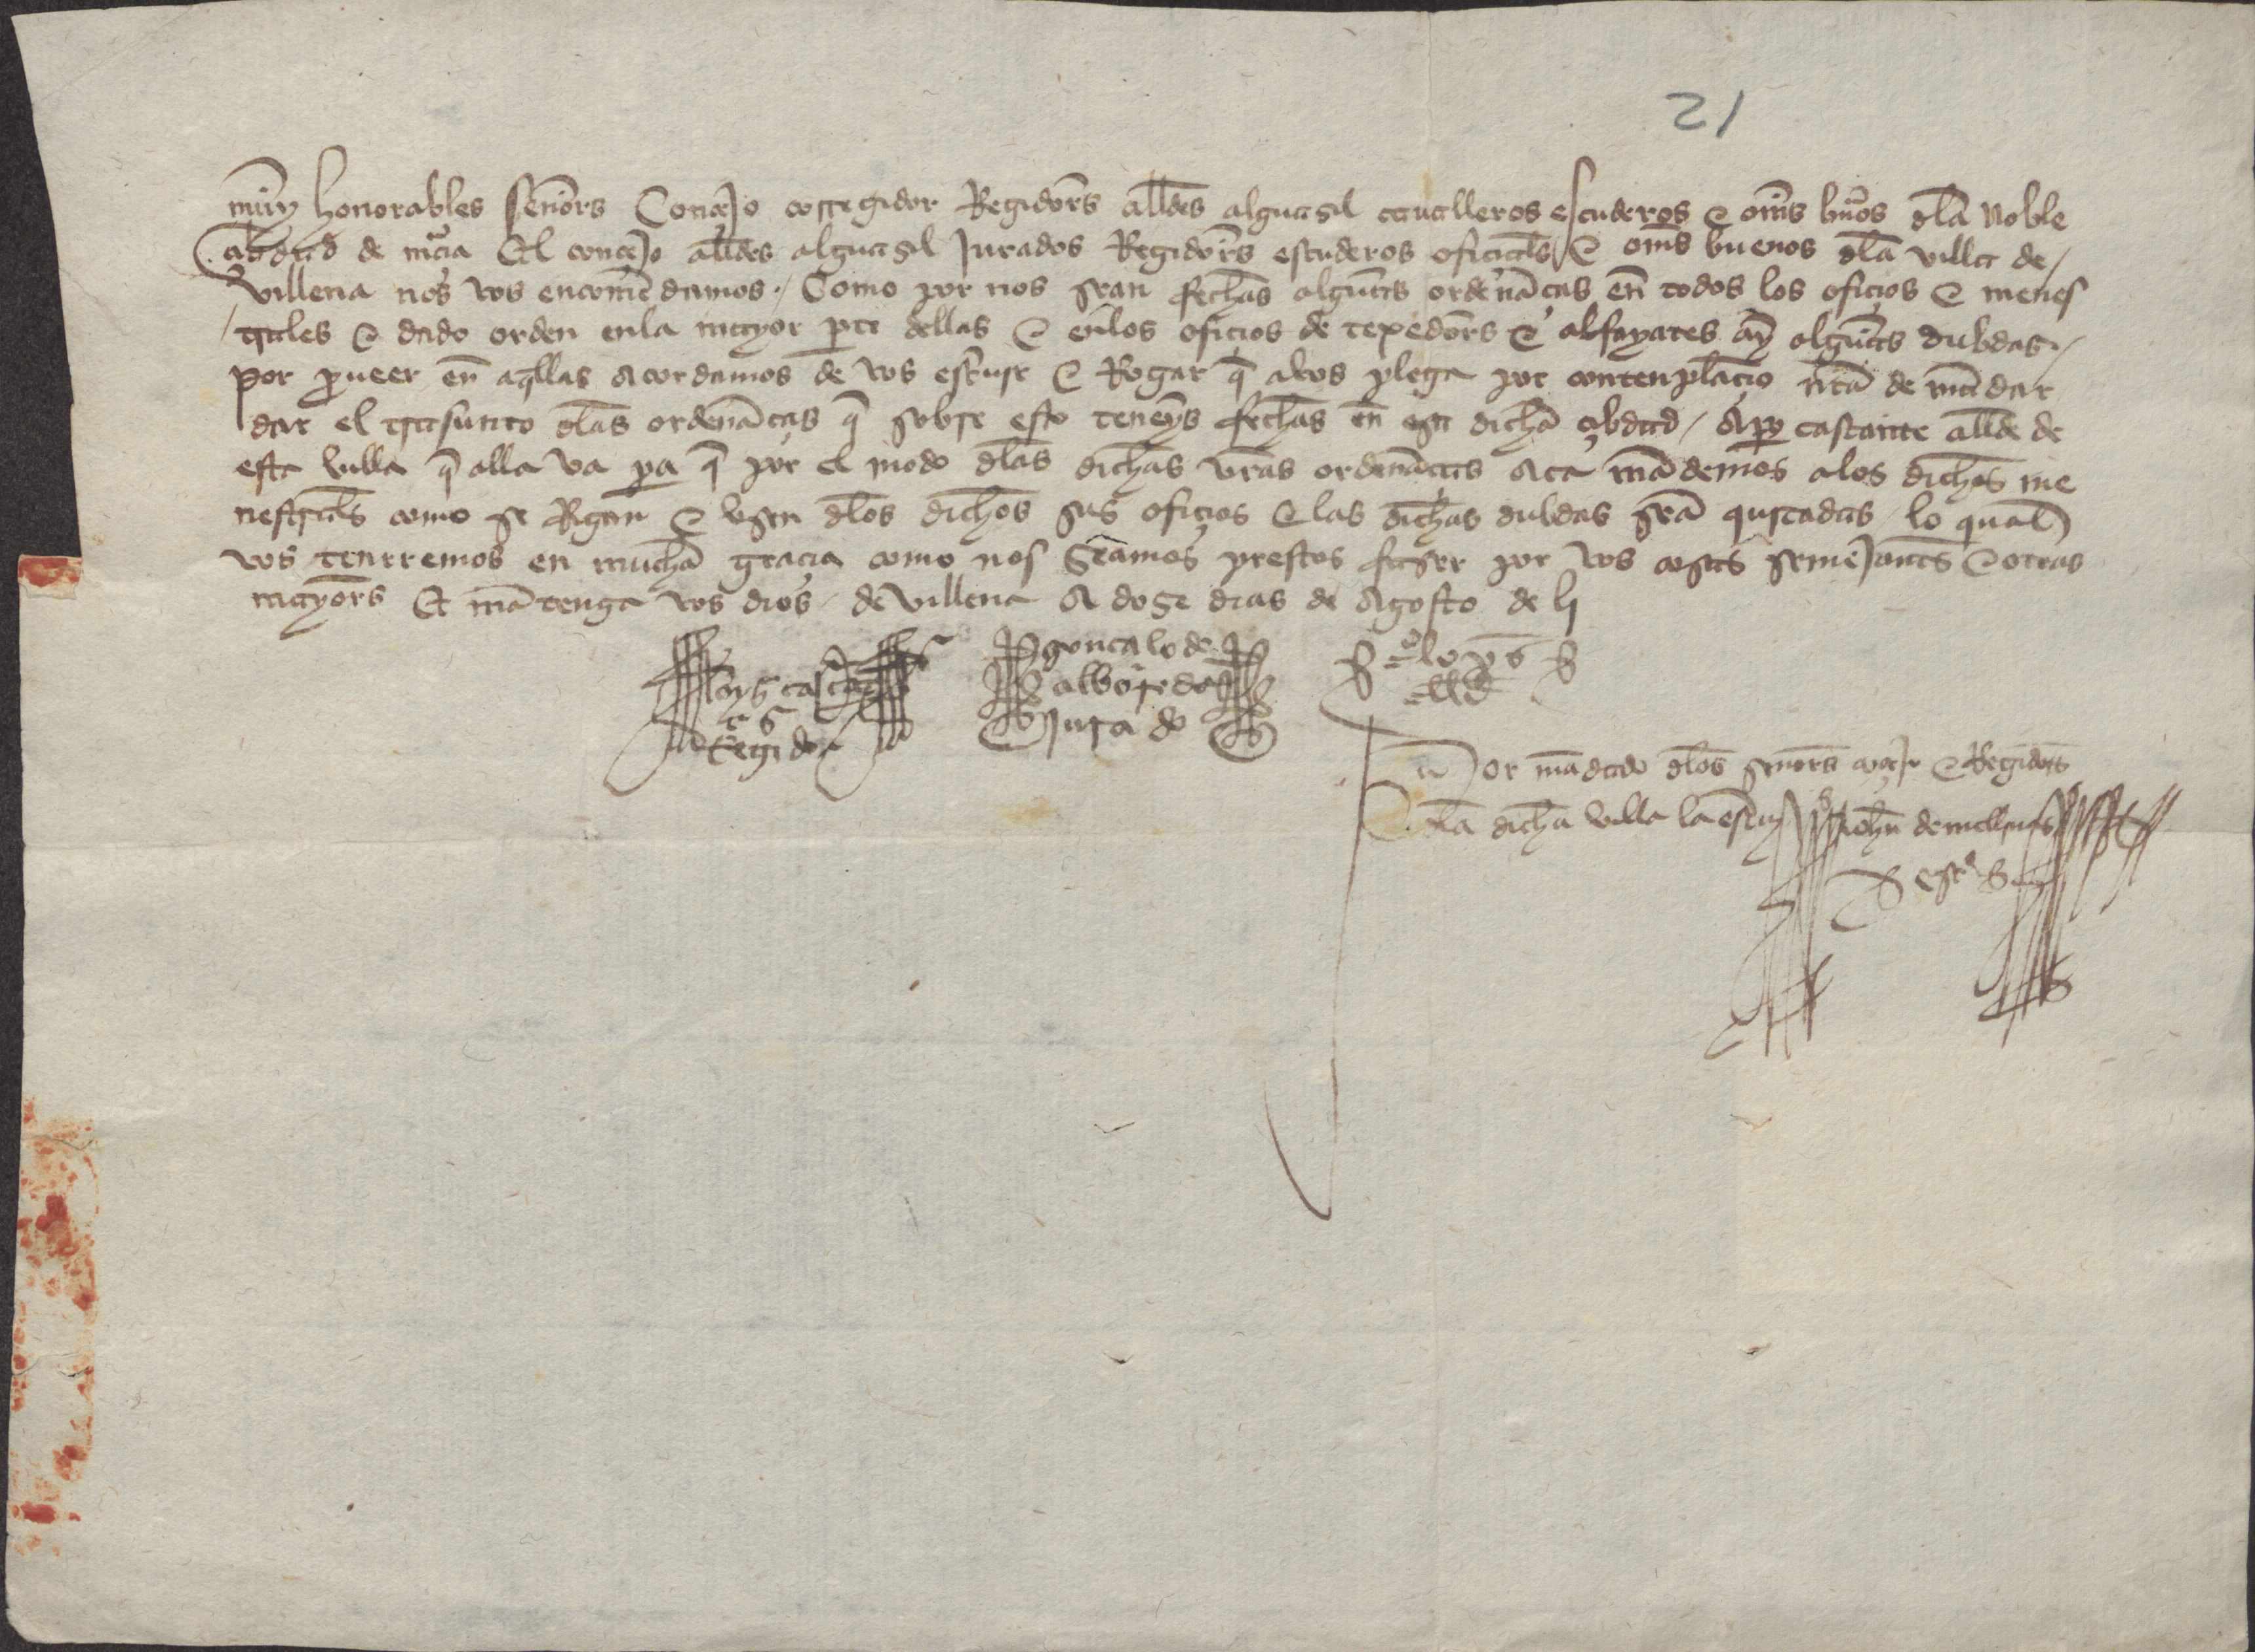 21
muy honorables señors Concejo corregidor Regidors allđes alguasil caualleros escuderos e oms buos dla Noble
çibdad de murçia El conçejo allđes alguasil Jurados Regidors escuderos ofiçials e oms buenos dla villa de
villena nos vos encomēdamos. Como por nos sean fechas algunas ordenāças en todos los ofiçios e menes
trales e dado orden enla mayor pte dellas e enlos ofiçios de texedors e alfayates ay algunas dubdas
por proueer en aqllas Acordamos de vos escreuir e Rogar q avos plega por contenplaçio nra de mādar
dar el trasunto dlas ordenāças q sobre esto teneys fechas en esa dicha çibdad / A po cascante allđe de
esta villa q alla va pa q por el modo dlas dichas vras ordenāças Aca mādemos alos dichos me
nestrals como se Rigan e vsen dlos dichos sus ofiçios e las dichas dubdas sea quitadas lo qual
vos tenrremos en mucha graçia como nos Seamos prestos faser por vos cosas semejants e otras
mayors Et mātenga vos dios de villena A dose dias de Agosto de lj
loys cascan gonçalo de lops
tes alboreda allđ
Regidor jurado
Por mādado dlos señors conçejo e Regidors
dla dicha villa la escreui john de
escno